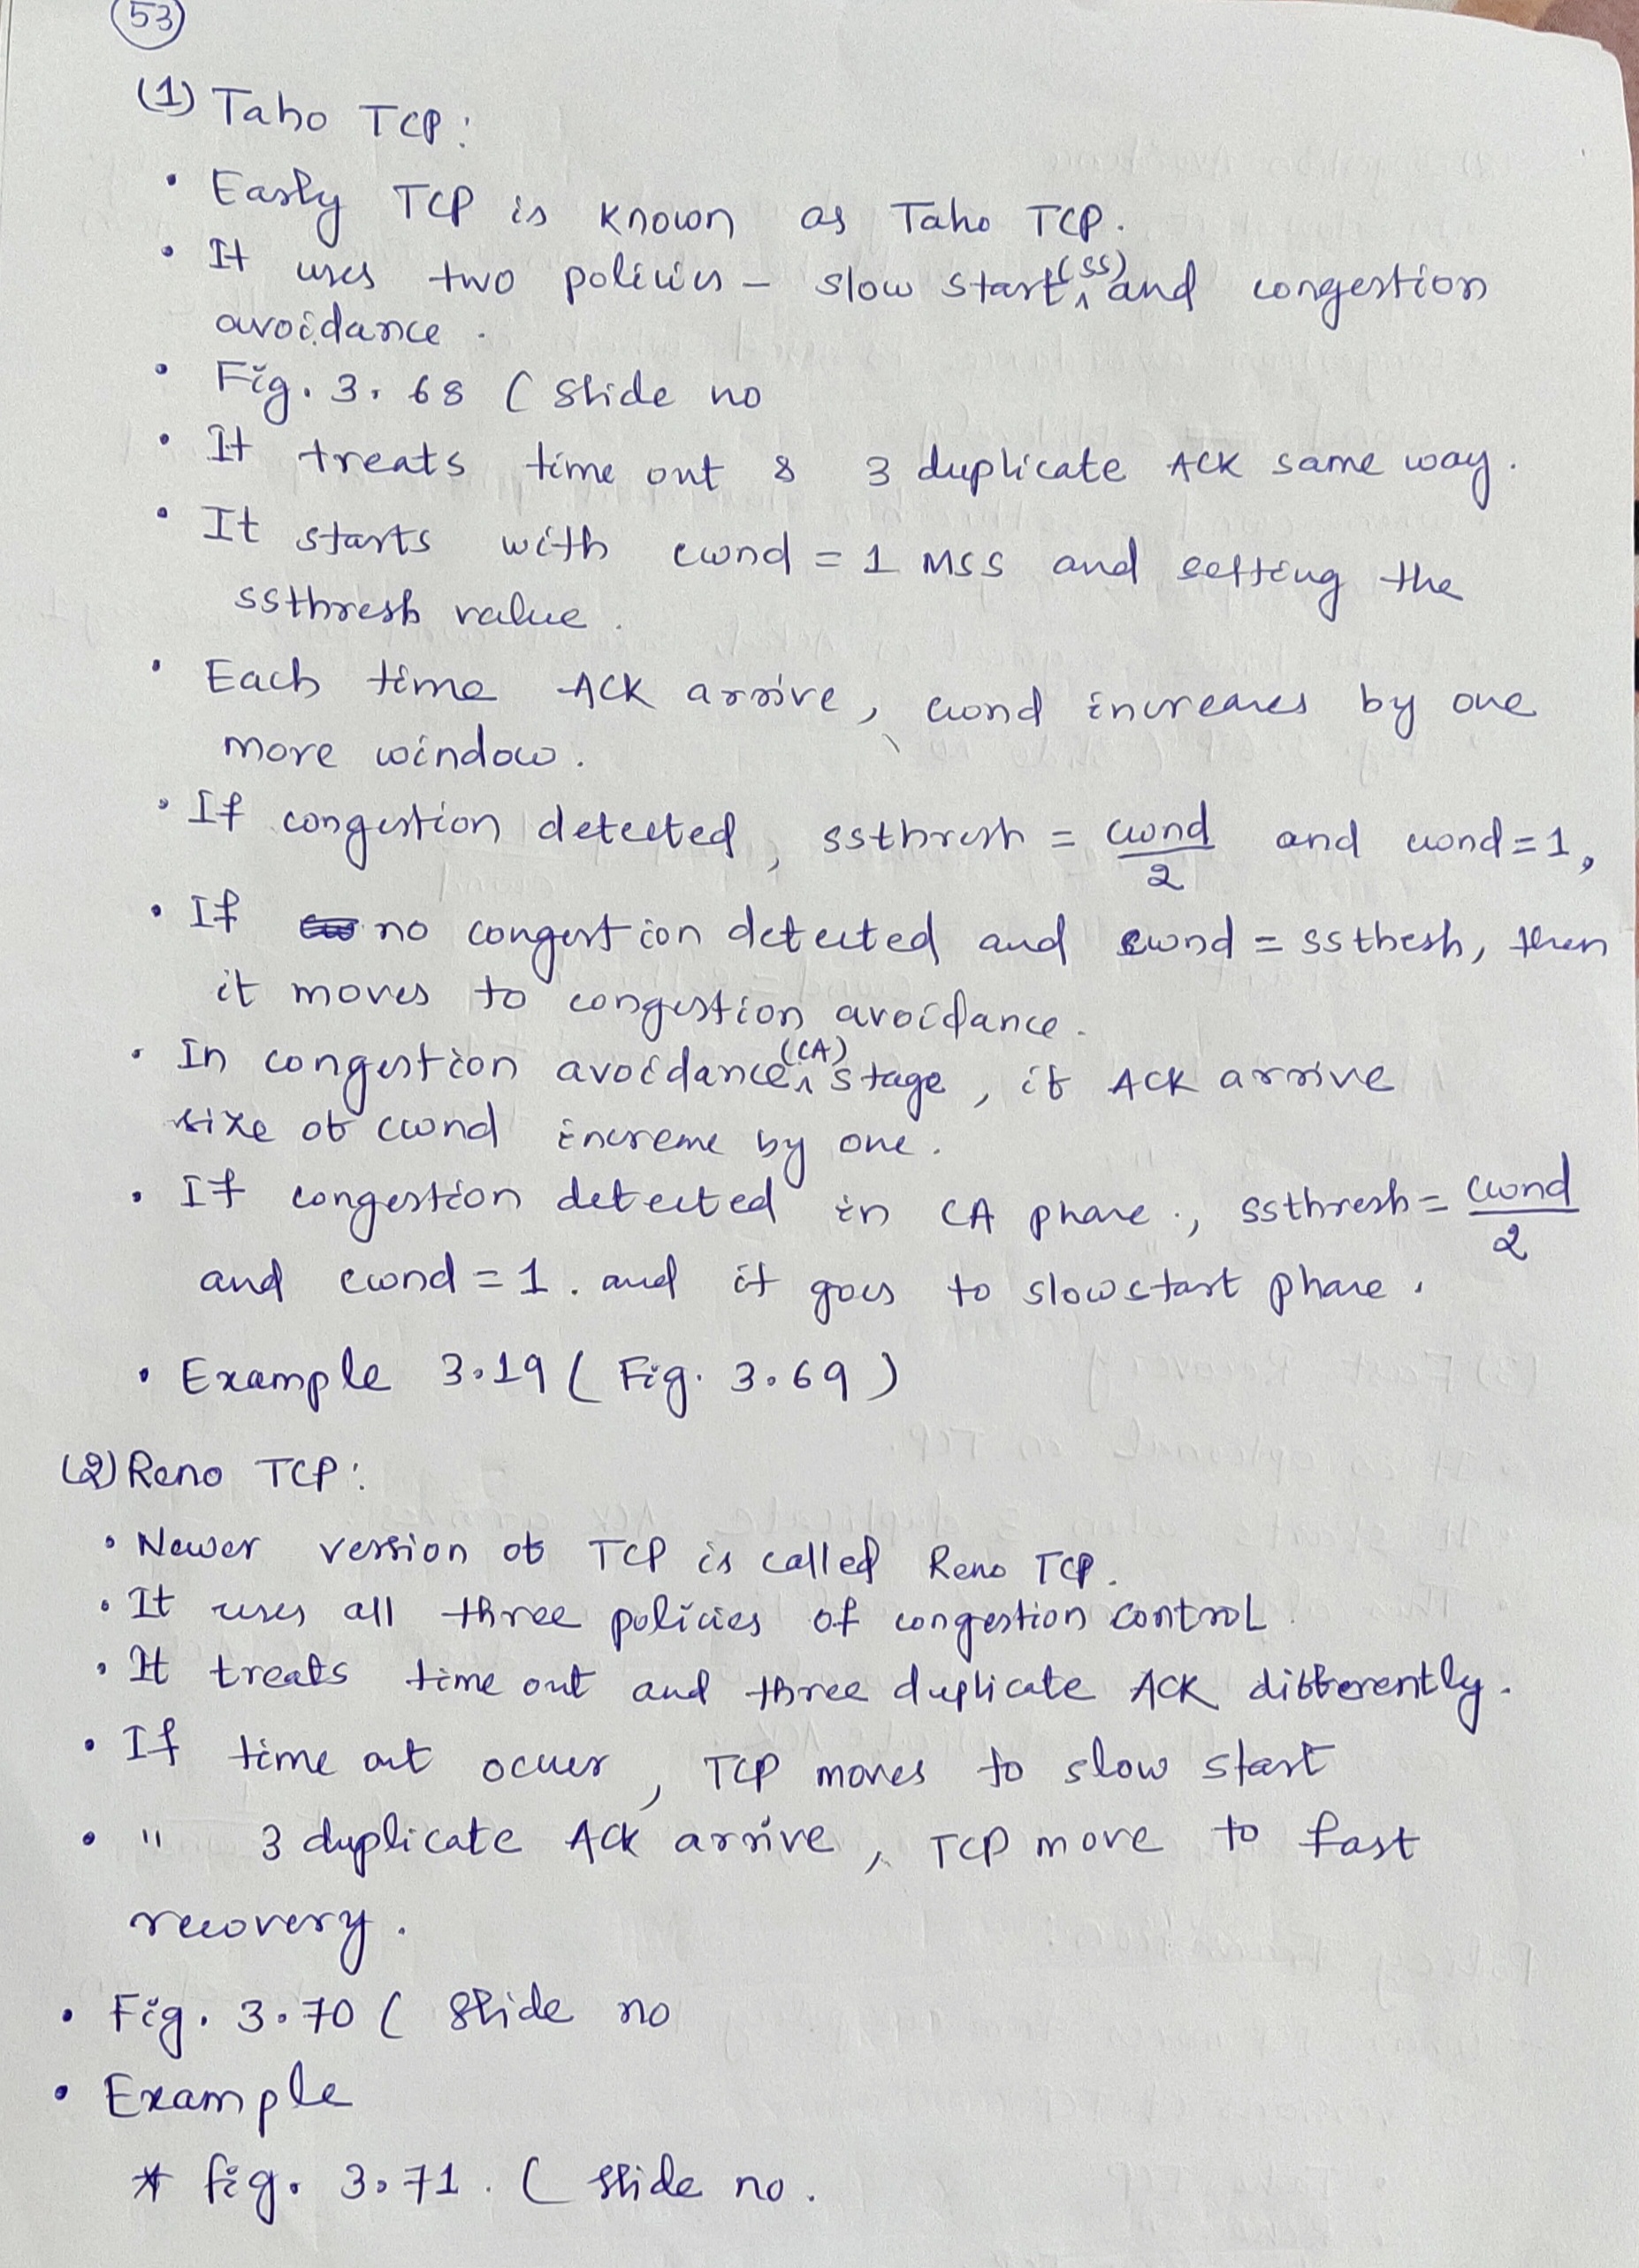 53
(1) Taho TCP:
• Early TCP is known as Taho TCP.
• It uses two policies – slow start (SS) and congestion
avoidance.
• Fig. 3.68 ( Slide no
• It treats time out & 3 duplicate ACK same way.
• It starts with cwnd = 1 MSS and setting the
ssthresh value.
• Each time ACK arrive, cwnd increases by one
more window.
• If congestion detected, ssthresh = cwnd/2 and cwnd=1,
• If no congestion detected and cwnd = ssthesh, then
it moves to congestion avoidance.
• In congestion avoidance (CA) stage, if ACK arrive
size of cwnd increme by one.
• If congestion detected in CA phase., ssthresh = cwnd/2
and cwnd = 1. and it goes to slowstart phase.
• Example 3.19 ( Fig. 3.69 )
(2) Reno TCP:
• Newer version of TCP is called Reno TCP.
• It uses all three policies of congestion control.
• It treats time out and three duplicate ACK differently.
• If time out ocuer, TCP moves to slow start
• " 3 duplicate ACK arrive, TCP move to fast
recovery.
• Fig. 3.70 ( Slide no
• Example
* fig. 3.71. ( slide no.